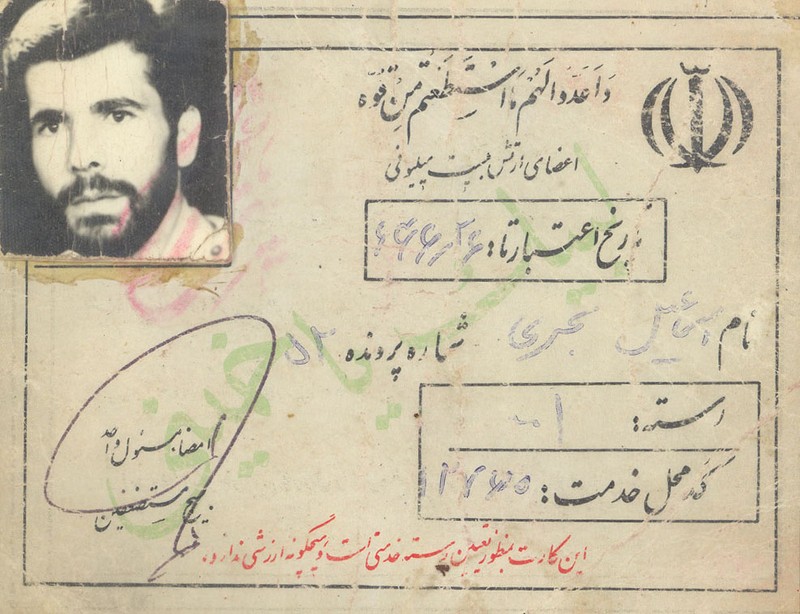 وَاَعِدّوا لَهُمْ مَا اسْتَطَعْتُم مِنْ قُوَّه
اعضای ارتش بیست میلیونی
تاریخ اعتبار تا:
نام اسماعیل شماره پرونده ۵۲
رسته:
کد محل خدمت:
امضاء مسئول واحد
بسیج مستضعفین
این کارت بمنظور تعیین رسته خدمتی است و هیچگونه ارزشی ندارد.
لبیک یا خمینی